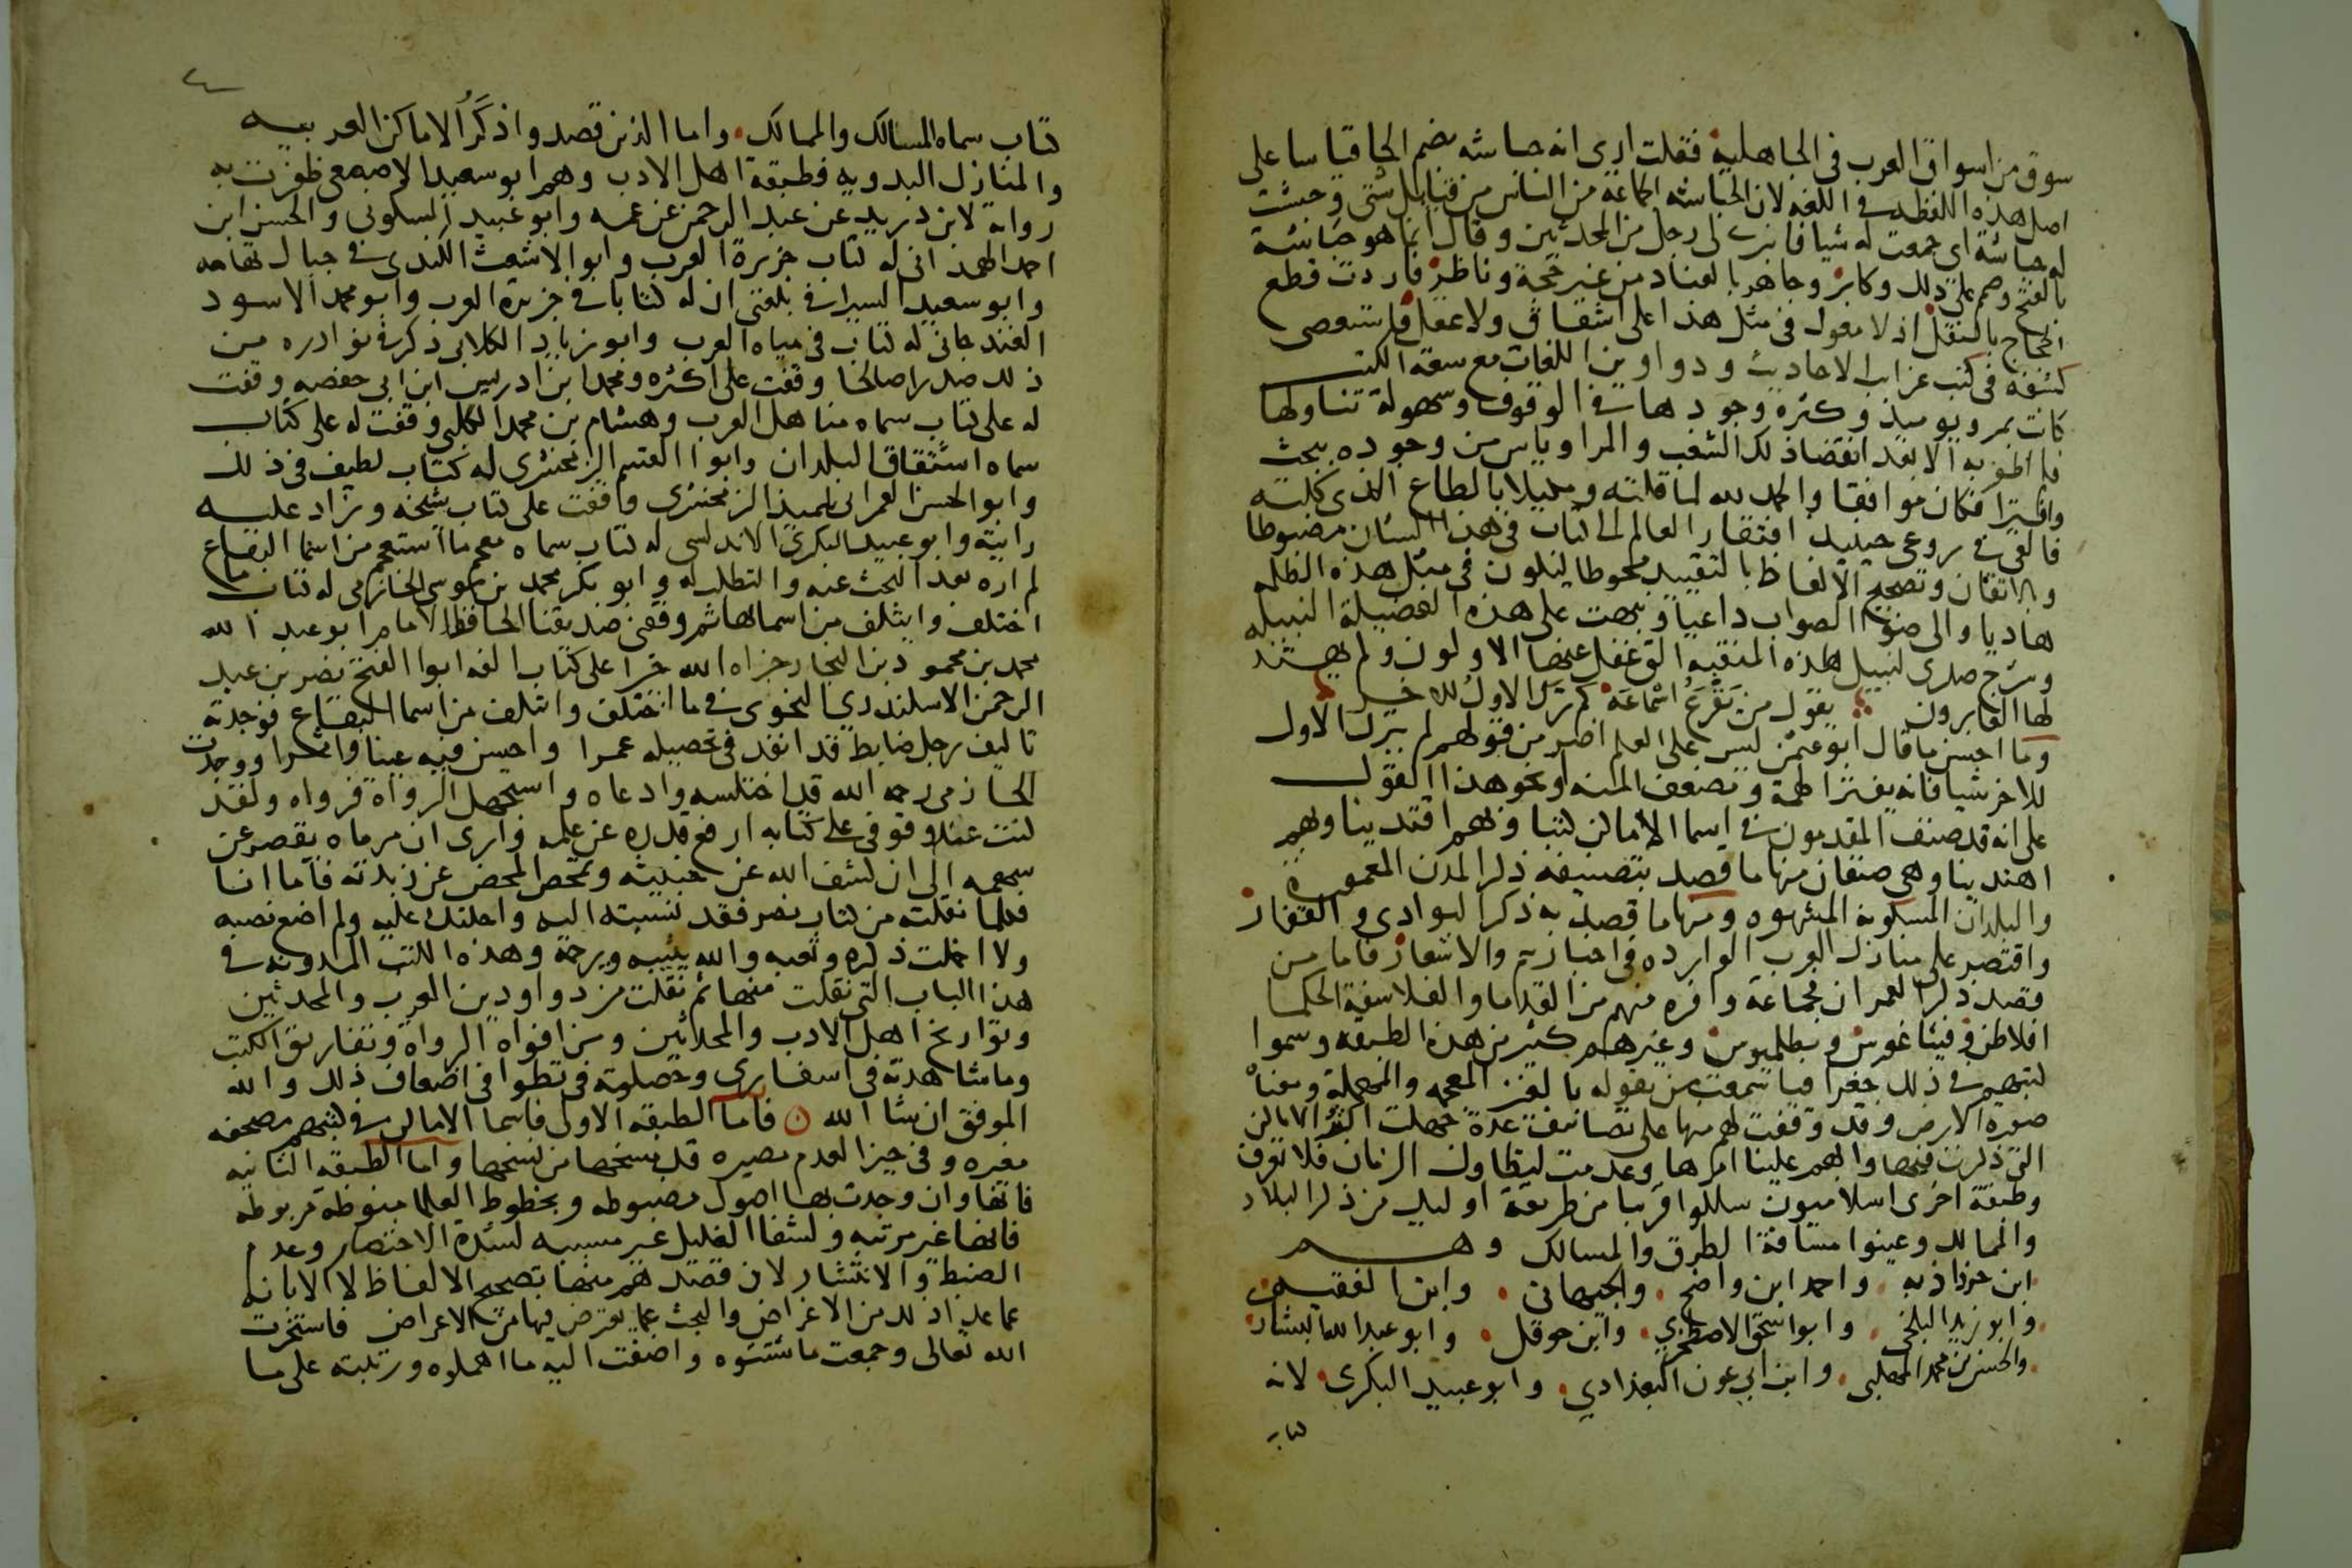 سوق من اسواق العرب فى الجاهلية فقلت ارى انه حباشه بضم الحا قياسا على
اصل هذه اللفظه فى اللغه لان الحباشه الجماعة من الناس من قبايل شتى وحبشت
له حباشة اى جمعت له شيا فانبرى لى رجل من المحدثين وقال انما هو حباشة
بالفتح وصمم على ذلك وكابر وجاهر بالعناد من غير حجة وناظر فاردت قطع
الحجاج بالنقل اذ لا معول فى مثل هذا على اشتقاق ولا عقل فاستعصى
كشفه فى كتب غرايب الاحاديث ودواوين اللغات مع سعة الكتب
كانت بمرو يوميذ وكثرة وجودها فى الوقوف وسهولة تناولها
فلم اظفر به الا بعد انقضا ذلك الشغب والمرا وياس من وجوده ببحث
واقترا فكان موافقا والحمد لله لما قلته ومكيلا بالصاع الذى كلته
فالقى فى روعى حينيذ افتقار العالم الى كتاب فى هذا الشان مضبوطا
وبالاتقان وتصحيح الالفاظ بالتقييد محوطا ليكون فى مثل هذه الظلمه
هاديا والى ضوء الصواب داعيا ونبهت على هذه الفضيلة النبيله
وشرح صدرى لنيل هذه المنقبه التى غفل عنها الاولون ولم يهتد
لها الغابرون يقول من تقرع اسماعه كم ترك الاول للاخر
وما احسن ما قال ابو عثمن ليس على العلم اضر من قولهم لم يترك الاول
للاخر شيا فانه يفتر الهمة ويضعف المنه او نحو هذا القول
على انه قد صنف المتقدمون فى اسما الاماكن كتبا وبهم اقتدينا وبهم
اهتدينا وهى صنفان منها ما قصد بتصنيفه ذكر المدن المعموره
والبلدان المسكونة المشهوره ومنها ما قصد به ذكر البوادى والقفار
واقتصر على منازل العرب الوارده فى اخبارهم والاشعار فاما من
قصد ذكر العمران فجماعة وافره منهم من القدما والفلاسفة الحكما
افلاطن وفيثاغورس وبطلميوس وغيرهم كثير من هذه الطبقه وسموا
كتبهم فى ذلك جغرافيا سمعت من يقوله بالغين المعجمه والمهملة ومعناه
صورة الارض وقد وقفت لهم منها على تصانيف عدة جهلت اكثر الاماكن
التى ذكرت فيها وابهم علينا امرها وعدمت لتطاول الزمان فلا تعرف
وطبقة اخرى اسلاميون سلكوا قريبا من طريقة اوليك من ذكر البلاد
والممالك وعينوا مسافة الطرق والمسالك وهم
ابن خرداذبه . واحمد ابن واضح . والجيهانى . وابن الفقيه
وابو زيد البلخى . وابو اسحق الاصطخرى . وابن حوقل . وابو عبد الله البشارى
والحسن بن محمد المهلبى . وابن ابى عون البغدادى . وابو عبيد البكرى لانه
كتاب
كتاب سماه المسالك والممالك . واما الذين قصدوا ذكر الاماكن العربيه
والمنازل البدويه فطبقة اهل الادب وهم ابو سعيد الاصمعى ظفرت به
رواية لابن دريد عن عبد الرحمن عن عمه وابو عبيد السكونى والحسن ابن
احمد الهمذانى له كتاب جزيرة العرب وابو الاشعث الكندى فى جبال تهامه
وابو سعيد السيرافى بلغنى ان له كتابا فى جزيرة العرب وابو محمد الاسود
الغندجانى له كتاب فى مياه العرب وابو زياد الكلابى ذكر فى نوادره من
ذلك صدرا صالحا وقفت على اكثره ومحمد ابن ادريس ابن ابى حفصه وقفت
له على كتاب سماه مناهل العرب وهشام بن محمد الكلبى وقفت له على كتاب
سماه اشتقاق البلدان وابو القسم الزمخشرى له كتاب لطيف فى ذلك
وابو الحسن العمرانى تلميذ الزمخشرى وقفت على كتاب شيخه وزاد عليه
رايته وابو عبيد البكرى الاندلسى له كتاب سماه معجم ما استعجم من اسما البقاع
لم اره بعد البحث عنه والتطلب له وابو بكر محمد بن موسى الحازمى له كتاب ما
اختلف وايتلف من اسمايها ثم وقفنى صديقنا الحافظ الامام ابو عبد الله
محمد بن محمود بن النجار جزاه الله خيرا على كتاب الفه ابو الفتح نصر بن عبد
الرحمن الاسكندرى النحوى فى ما اختلف وايتلف من اسما البقاع فوجدته
تاليف رجل ضابط قد انفد فى تحصيله عمرا واحسن فيه عينا واثرا ووجدت
الحازمى رحمه الله قد اختلسه وادعاه واستجهل الرواة فرواه ولقد
كنت عند وقوفى على كتابه ارفع قدره عن علمه وارى ان مرماه يقصر عن
سهمه الى ان كشف الله عن خبيثته وتمخض المحض عن زبدته فاما انا
فكلما نقلته من كتاب نصر فقد نسبته اليه واحلتك عليه ولم اضع نصبه
ولا اخملت ذكره وتعبه والله يثيبه ويرحمه وهذه الكتب المدونه فى
هذا الباب التى نقلت منها ثم نقلت من دواوين العرب والمحدثين
وتواريخ اهل الادب والمحدثين ومن افواه الرواة وتفاريق الكتب
وما شاهدته فى اسفارى وحصلته فى تطوافى اضعاف ذلك والله
الموفق ان شا الله ن فاما الطبقه الاولى فاسما الاماكن فى كتبهم مصحفه
مغيره وفى حيز العدم مصيره قد مسخها من نسخها واما الطبقه الثانيه
فانها وان وجدت بها اصول مضبوطه وبخطوط العلما منوطة مربوطه
فانها غير مرتبه ولشفا الغليل غير مسببه لشدة الاختصار وعدم
الضبط والانتشار لان قصدهم منها تصحيح الالفاظ لا الابانه
عما عدا ذلك من الاغراض والبحث عما يعترض فيها من الاعراض فاستخرت
الله تعالى وجمعت ما شتتوه واضفت اليه ما اهملوه ورتبته على ما